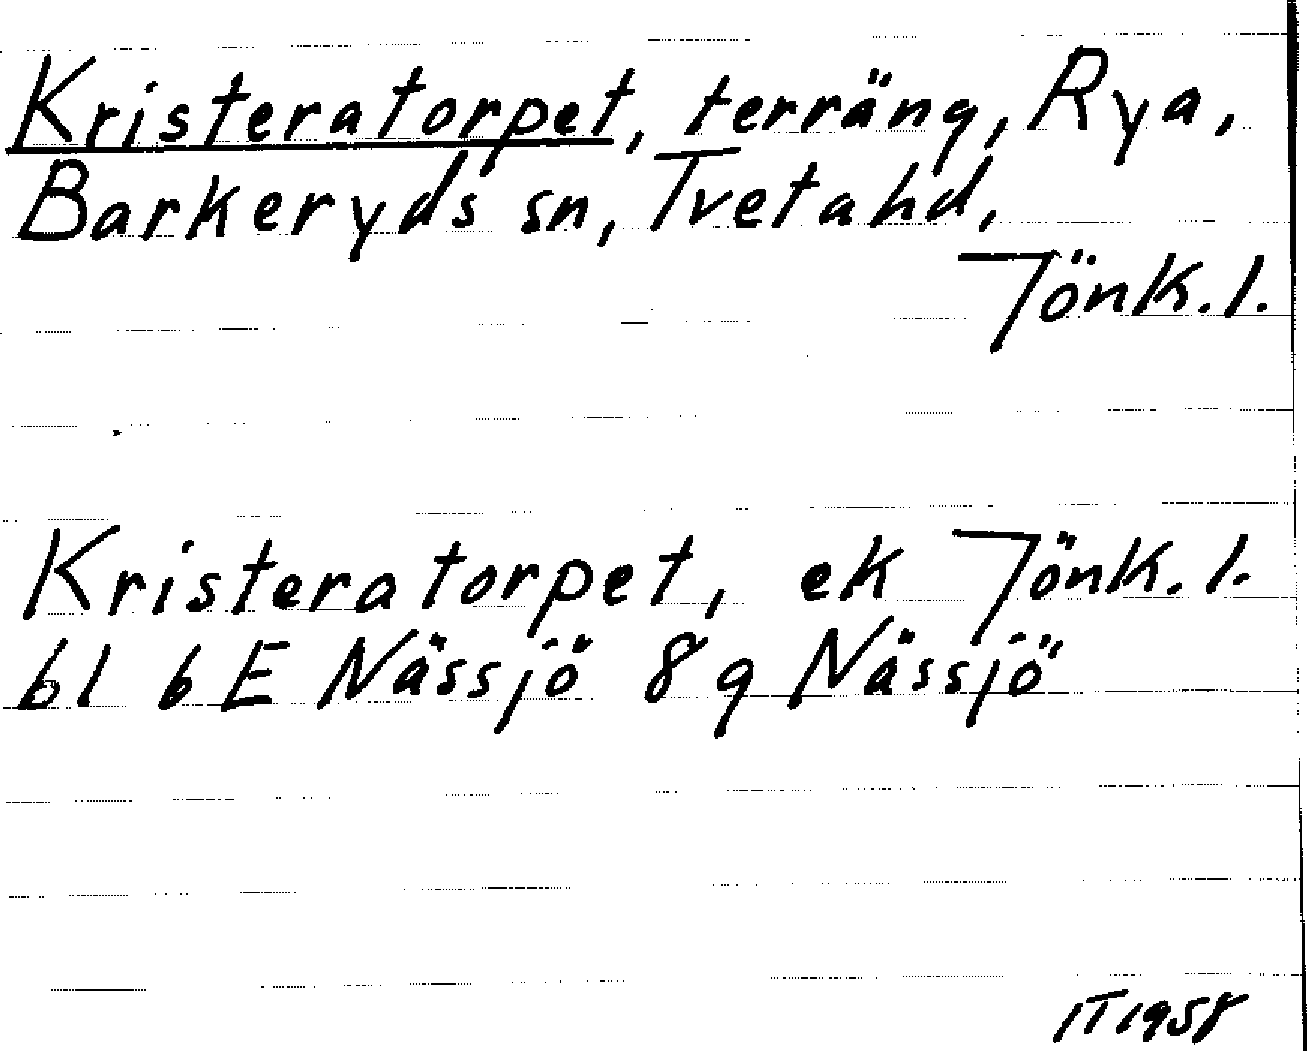 Kristeratorpet, terräng, Rya,
Barkeryds sn, Tveta hd,
Jönk. l.
Kristeratorpet, ek Jönk. l.
bl 6 E Nässjö 8 g Nässjö
IT 1958